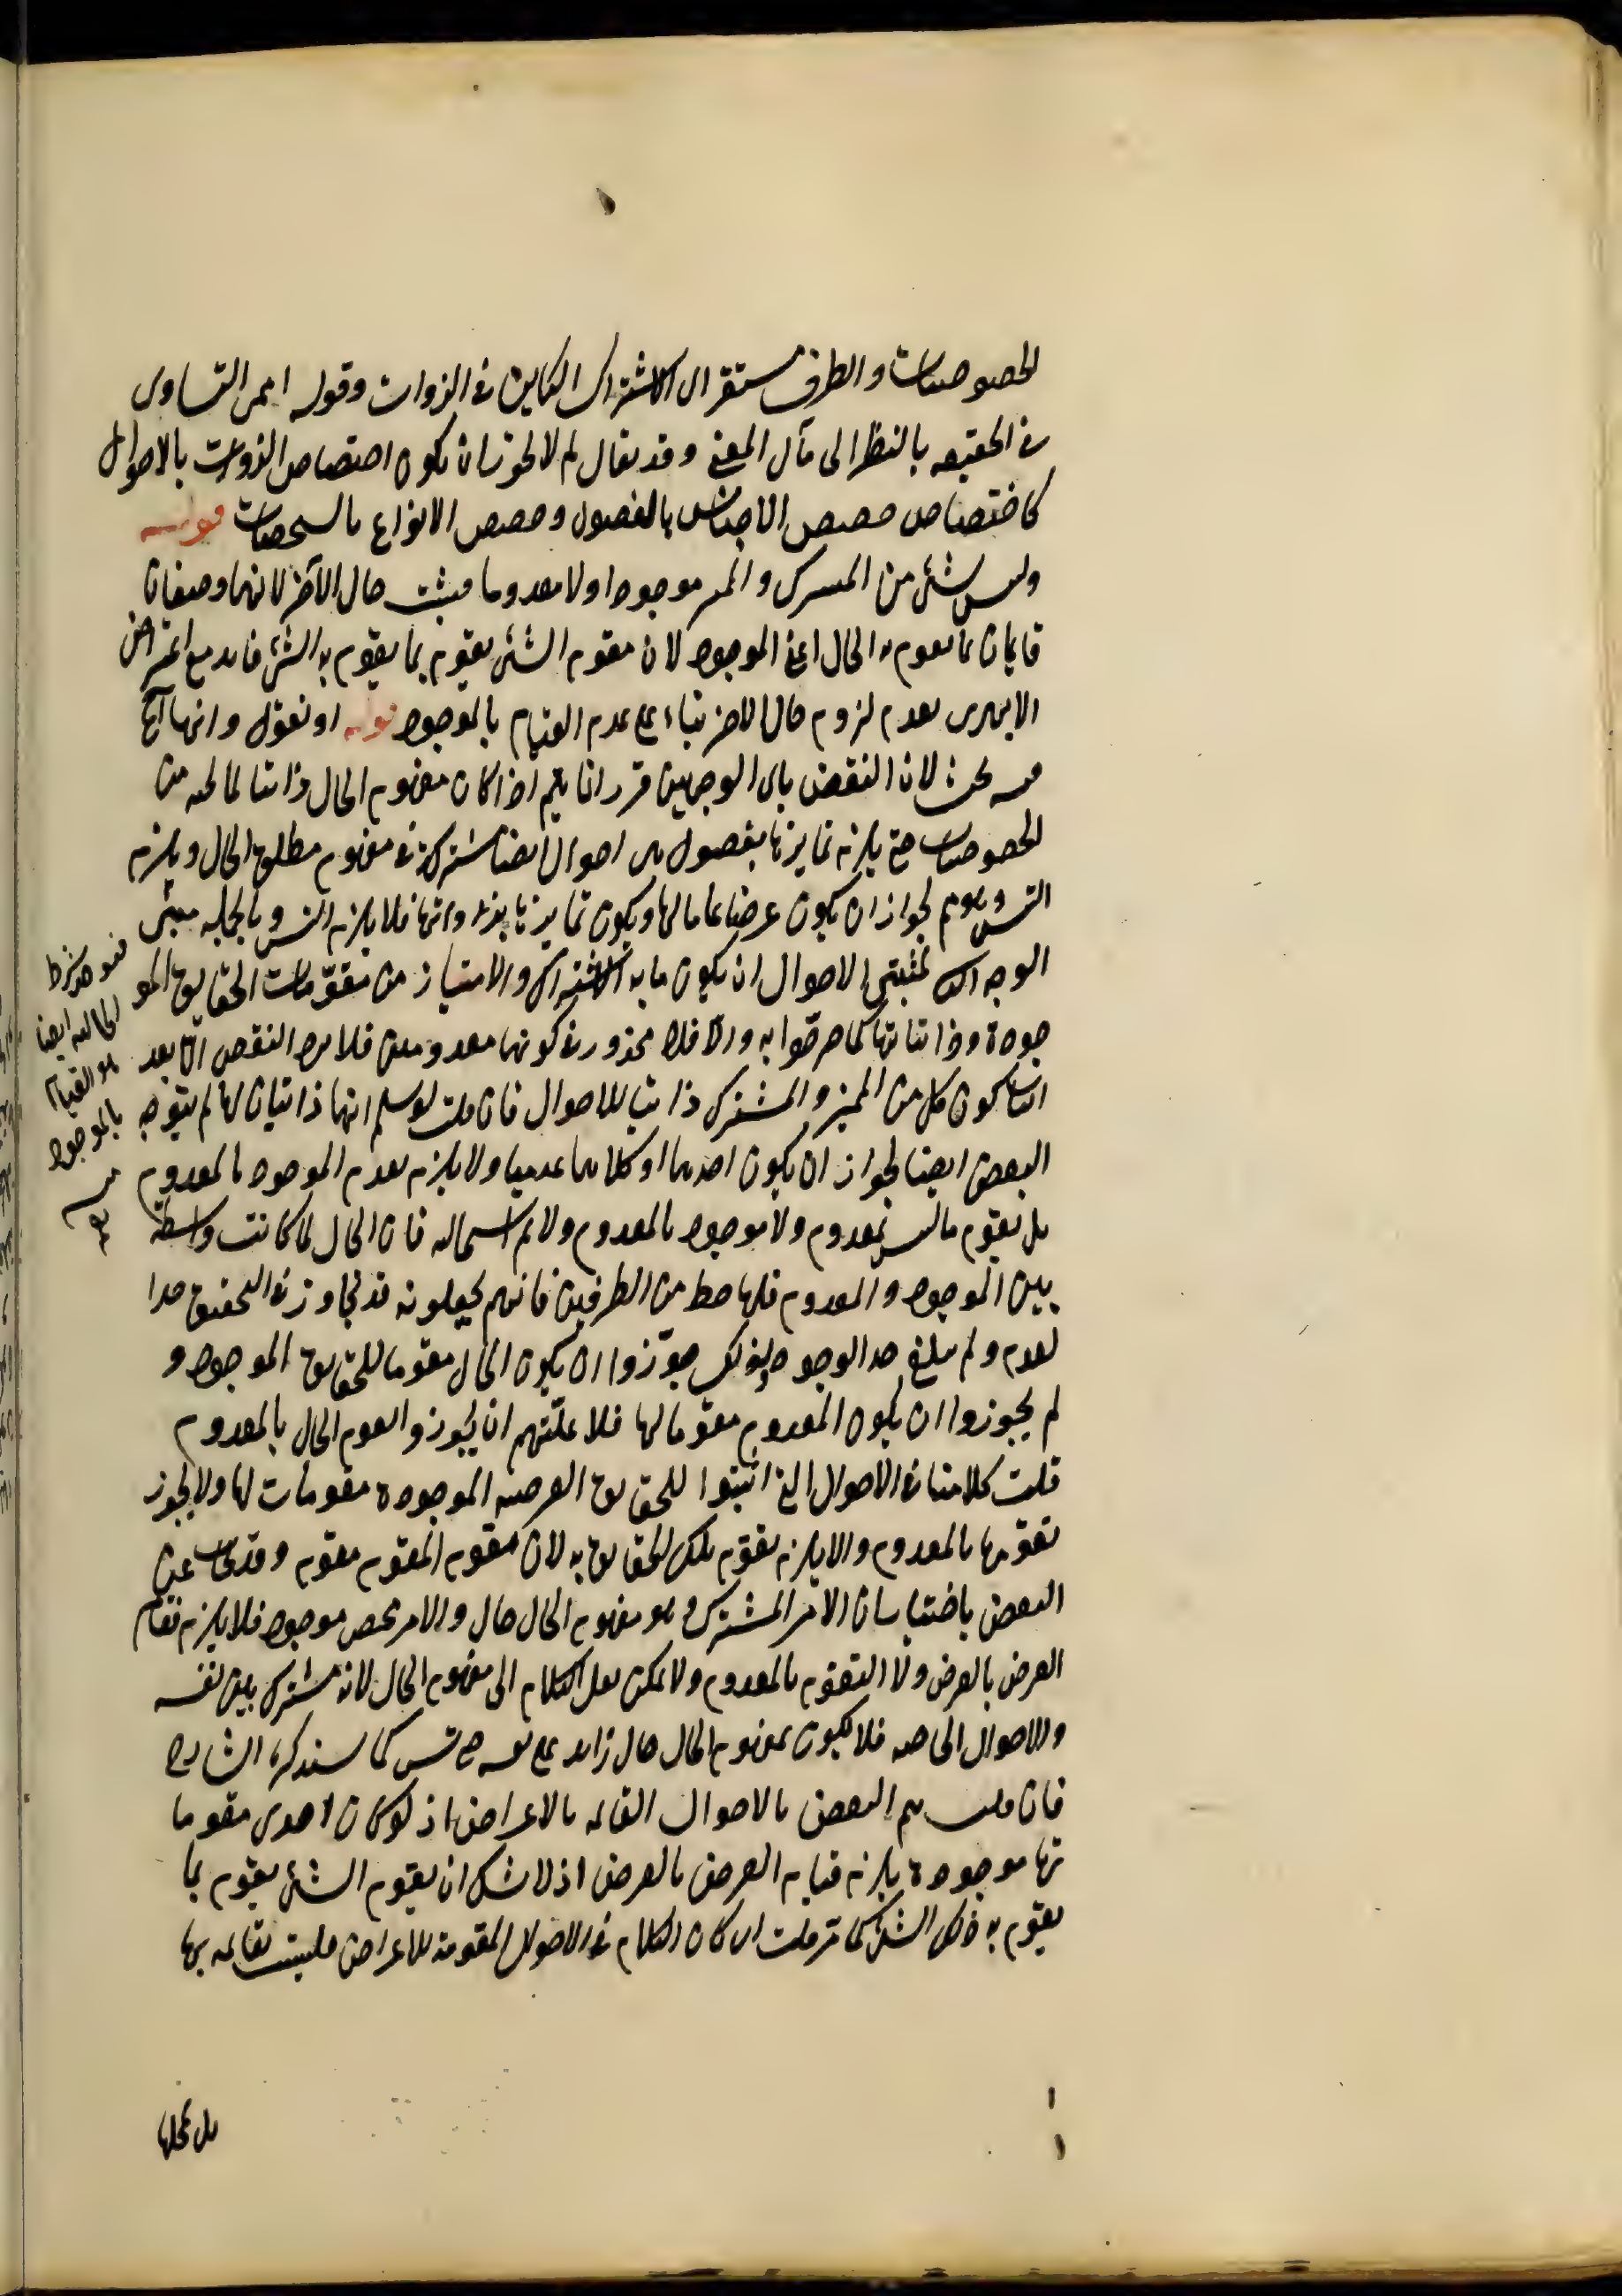 الخصوصيات والظرف مستقر اى الاشتراك الكاين فى الذوات وقوله اعنى التساوى
فى الحقيقة بالنظر الى مآل المعنى وقد يقال لم لا يجوز ان يكون اختصاص الذوات بالاحوال
كاختصاص حصص الاجناس بالفصول وحصص الانواع بالتشخصات قوله
وليس شئ من المشترك والمميز موجودا ولا معدوما فيثبت حال الآخر لانهما وصفان
قايمان بما يقوم به الحال اعنى الموجود لان مقوم الشئ يقوم بما يقوم به الشئ فاندفع اعتراض
الابهرى بعدم لزوم حال الآخر بناء على عدم القيام بالموجود قوله او نقول وانها آه
فيه بحث لان النقض باى الوجهين قرر انما يتم اذا كان مفهوم الحال ذاتيا لما تحته من
الخصوصيات حتى يلزم تمايزها بفصول هى احوال ايضا مشتركة فى مفهوم مطلق الحال ويلزم
التس وهو م لجواز ان يكون عرضا عاما لها ويكون تمايزها بذواتها فلا يلزم التس وبالجملة مبنى
الوجه لمثبتى الاحوال ان يكون ما به الاشتراك والامتياز من مقومات الحقايق المو
جودة وذاتياتها كما صرحوا به والا فلا محذور فى كونهما معدومين فلا يرد النقض الا بعد
اثبات كون كل من المميز والمشترك ذاتيا للاحوال فان قلت لو سلم انهما ذاتيان لها لم يتوجه
النقض ايضا لجواز ان يكون احدهما او كلاهما عدميا ولا يلزم تقوم الموجود بالمعدوم
بل تقوم ما ليس بمعدوم ولا موجود بالمعدوم ولا نم استحالته فان الحال لما كانت واسطة
بين الموجود والمعدوم فلها حظ من الطرفين فانهم يجعلونه قد تجاوز فى التحقق حد ا
لعدم ولم يبلغ حد الوجود ولذلك جوزوا ان يكون الحال مقوما للحقايق الموجود و
لم يجوزوا ان يكون المعدوم مقوما لها فلا عليهم ان يجوزوا تقوم الحال بالمعدوم
قلت كلامنا فى الاحوال التى اثبتوا للحقايق العرضية الموجودة مقومات لها ولا يجوز
تقومها بالمعدوم والا يلزم تقوم تلك الحقايق به لان مقوم المقوم مقوم وقد يجاب عن
النقض باختيار ان الامر المشترك وهو مفهوم الحال حال والامر المختص موجود فلا يلزم قيام
العرض بالعرض ولا التقوم بالمعدوم ولا يمكن نقل الكلام الى مفهوم الحال لانه مشترك بين نفسه
والاحوال الخاصة فلا يكون لمفهوم الحال حال زايد على نفسه حتى تس كما سنذكره الشارح
فان قلت يتم النقض بالاحوال القائمة بالاعراض اذ لو كان احدى مقوما
تها موجودة يلزم قيام العرض بالعرض اذ لا شك ان مقوم الشئ يقوم بما
يقوم به ذلك الشئ كما مر قلت ان كان الكلام فى الاحوال المقومة للاعراض فليست بقائمة بها
بل محلها
الحالية ايضا
هو القيام
بالموجود
منه